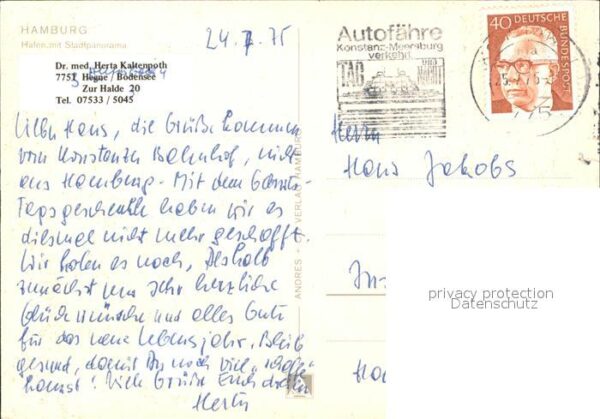 HAMBURG
Hafen mit Stadtpanorama
24. 7. 75
Dr. med. Herta Kaltenpoth
7751 Hegne / Bodensee
Zur Halde 20
Tel. 07533 / 5045
Lieber Hans, die Grüße kommen
vom Konstanzer Bahnhof, nicht
aus Hamburg. Mit dem Geburts-
tagsgeschenk haben wir es
diesmal nicht mehr geschafft.
Wir holen es nach, deshalb
zunächst nur sehr herzliche
Glückwünsche und alles Gute
für das neue Lebensjahr. Bleib
gesund, damit Du noch viel "schaffen"
kannst! Viele Grüße Euch
Herta
ANDRES + CO VERLAG HAMBURG
Autofähre
Konstanz-Meersburg
verkehrt
TAG
40 DEUTSCHE
BUNDESPOST
775
Herrn
Hans Jakobs
privacy protection
Datenschutz